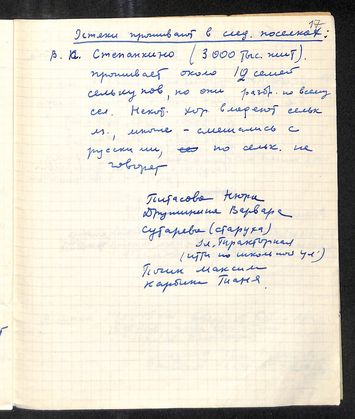 17
Остяки проживают в след. поселках:
В. Степанкино (3000 тыс. жит).
проживает около 12 семей
селькупов, но они разбр. по всему
сел. Некот. хор владеют сельк
яз., многие – смешались с
русскими, по сельк. не
говорят
Пытасова Нюра
Дружинина Варвара
Сутарева (старуха)
ул. Тракторная
(идти по школьной ул.)
Максим
Карбина Таня